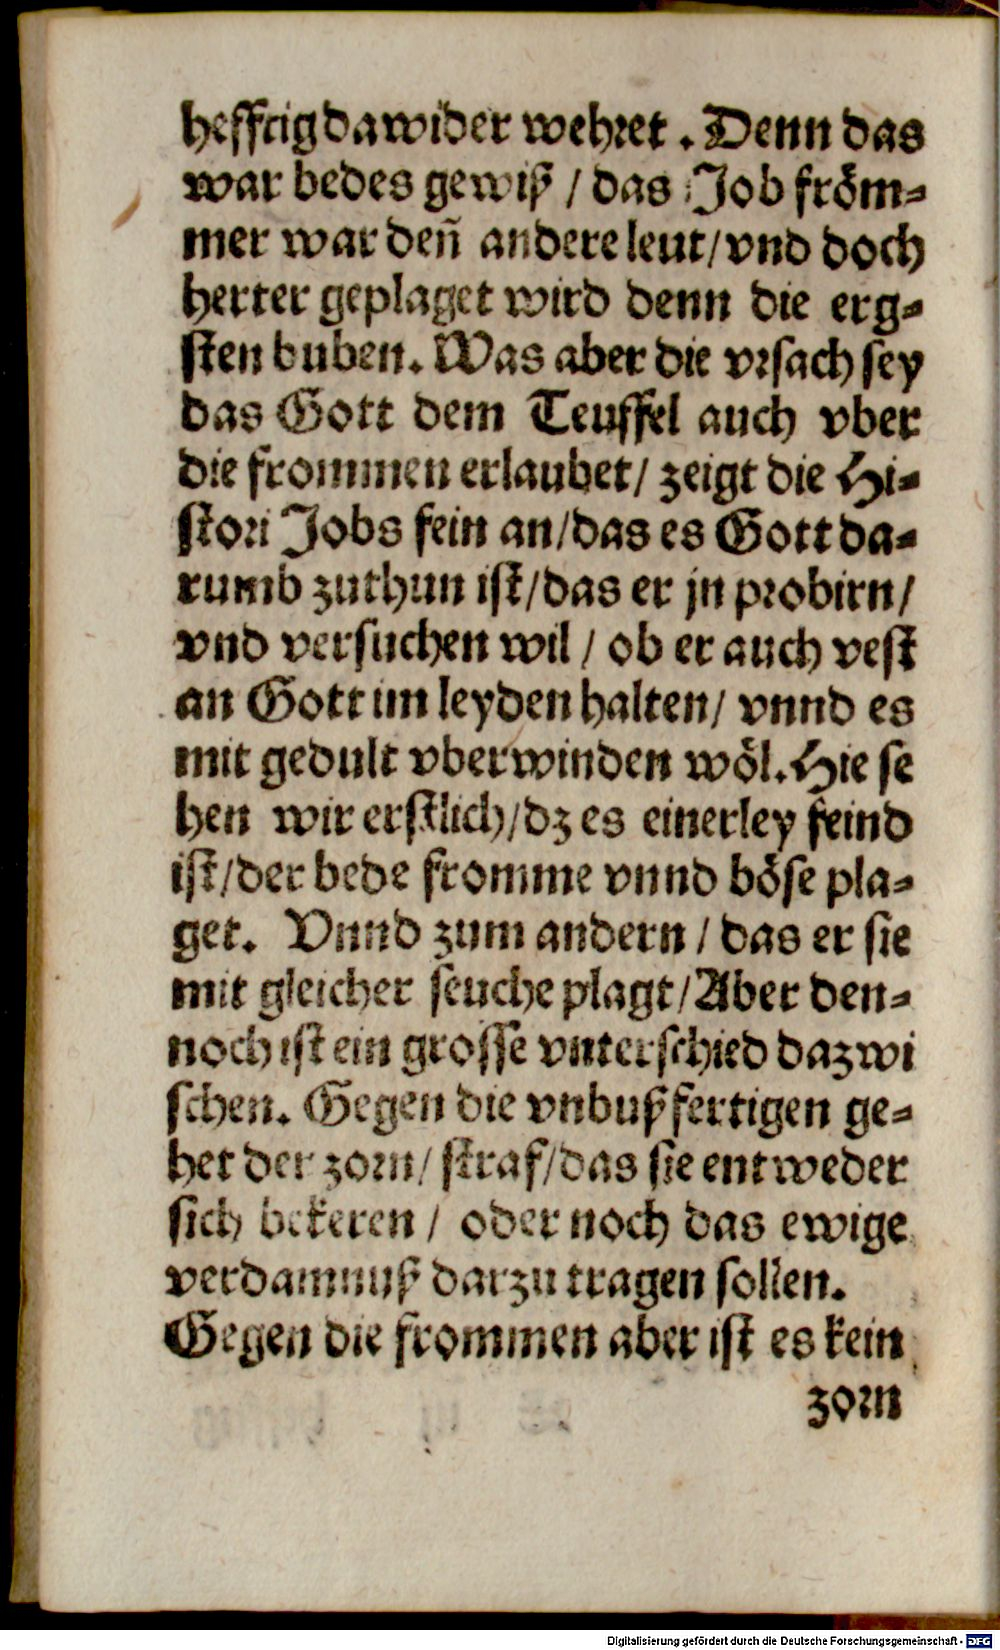 hefftig dawider wehret. Denn das
war bedes gewiß / das Job fröm⸗
mer war deñ andere leut/ vnd doch
herter geplaget wird denn die erg⸗
sten buben. Was aber die vrsach sey
das Gott dem Teuffel auch vber
die frommen erlaubet/ zeigt die Hi⸗
stori Jobs fein an/das es Gott da⸗
rumb zuthun ist/das er jn probirn/
vnd versuchen wil / ob er auch vest
an Gott im leyden halten/ vnnd es
mit gedult vberwinden wöl. Hie se
hen wir erstlich/dz es einerley feind
ist/der bede fromme vnnd böse pla⸗
get. Vnnd zum andern / das er sie
mit gleicher seuche plagt/Aber den⸗
noch ist ein grosse vnterschied dazwi
schen. Gegen die vnbußfertigen ge⸗
het der zorn/ straf/das sie entweder
sich bekeren / oder noch das ewige
verdamnuß darzu tragen sollen.
Gegen die frommen aber ist es kein
zorn
Digitalisierung gefördert durch die Deutsche Forschungsgemeinschaft - DFG